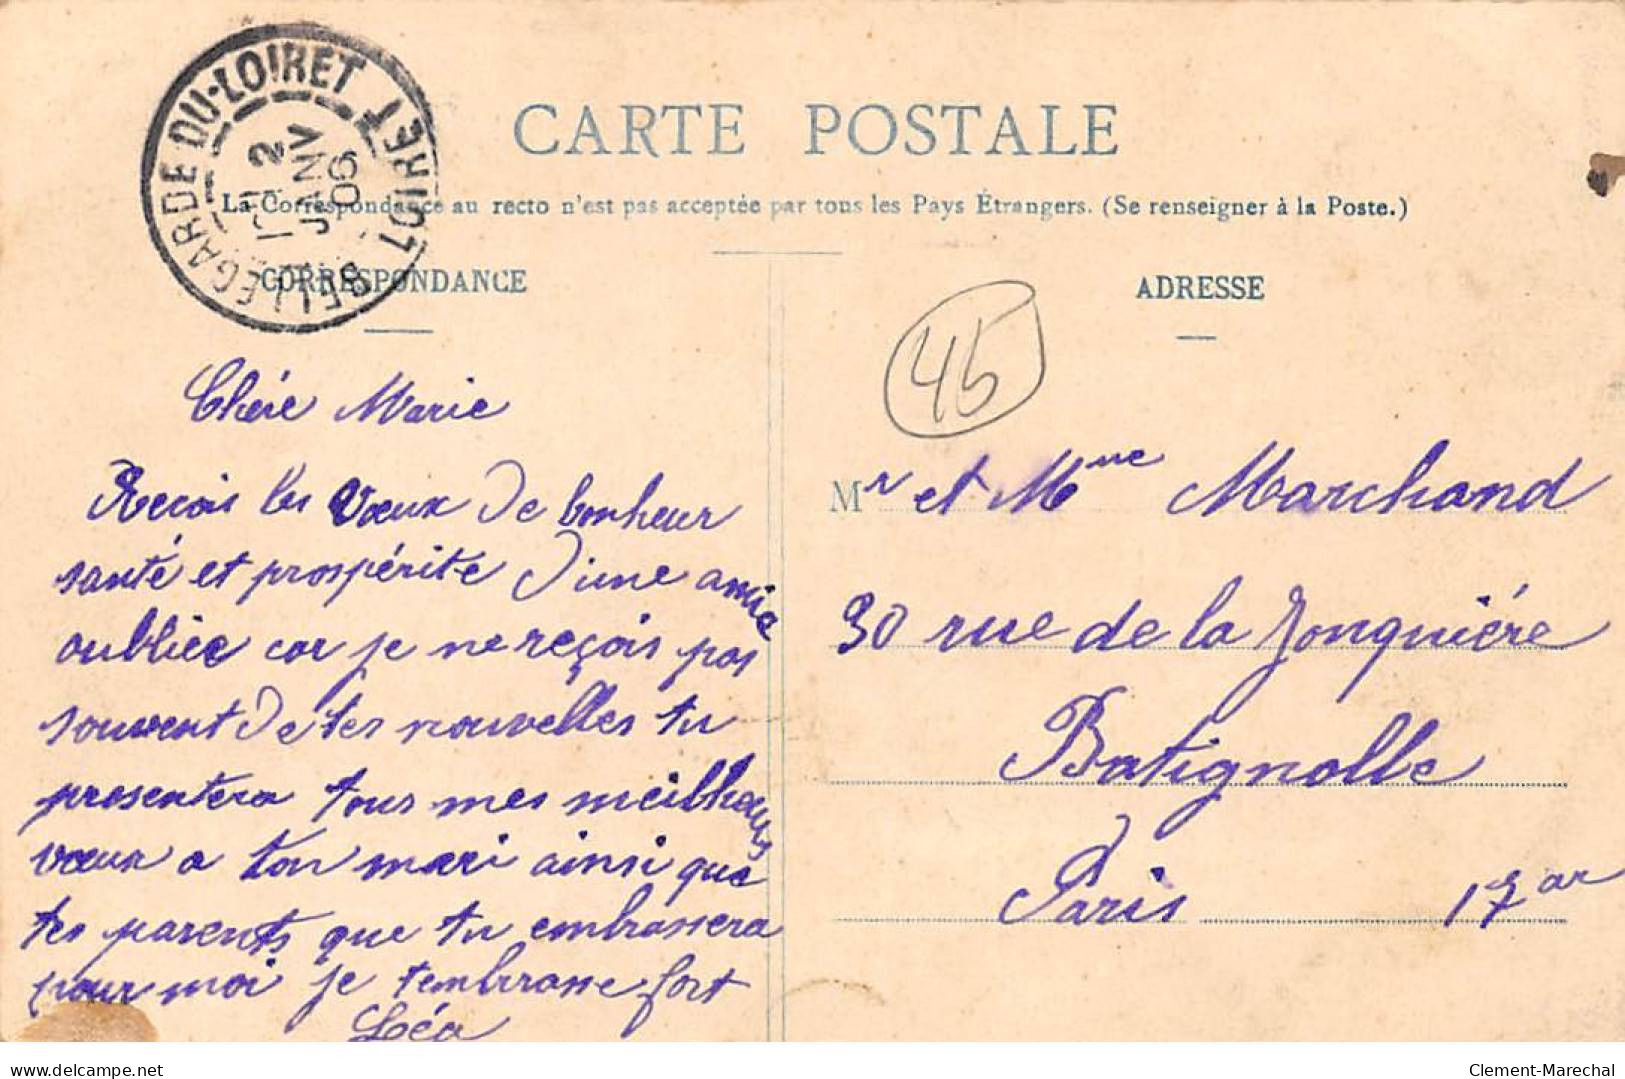 BELLEGARDE-DU-LOIRET
LOIRET
2
JANV
06
CARTE POSTALE
La Correspondance au recto n'est pas acceptée par tous les Pays Étrangers. (Se renseigner à la Poste.)
CORRESPONDANCE
Chére Marie
Recois les Voeux de bonheur
santé et prospérité d'une amie
oubliée car je ne reçois pas
souvent de tes nouvelles tu
presentera tous mes meilleurs
voeux a ton mari ainsi que
tes parents que tu embrassera
pour moi je t'embrasse fort
Léa
ADRESSE
45
Mr et Mme Marchand
30 rue de la Jonquiére
Batignolle
Paris 17 ar
delcampe.net
Clement-Marechal